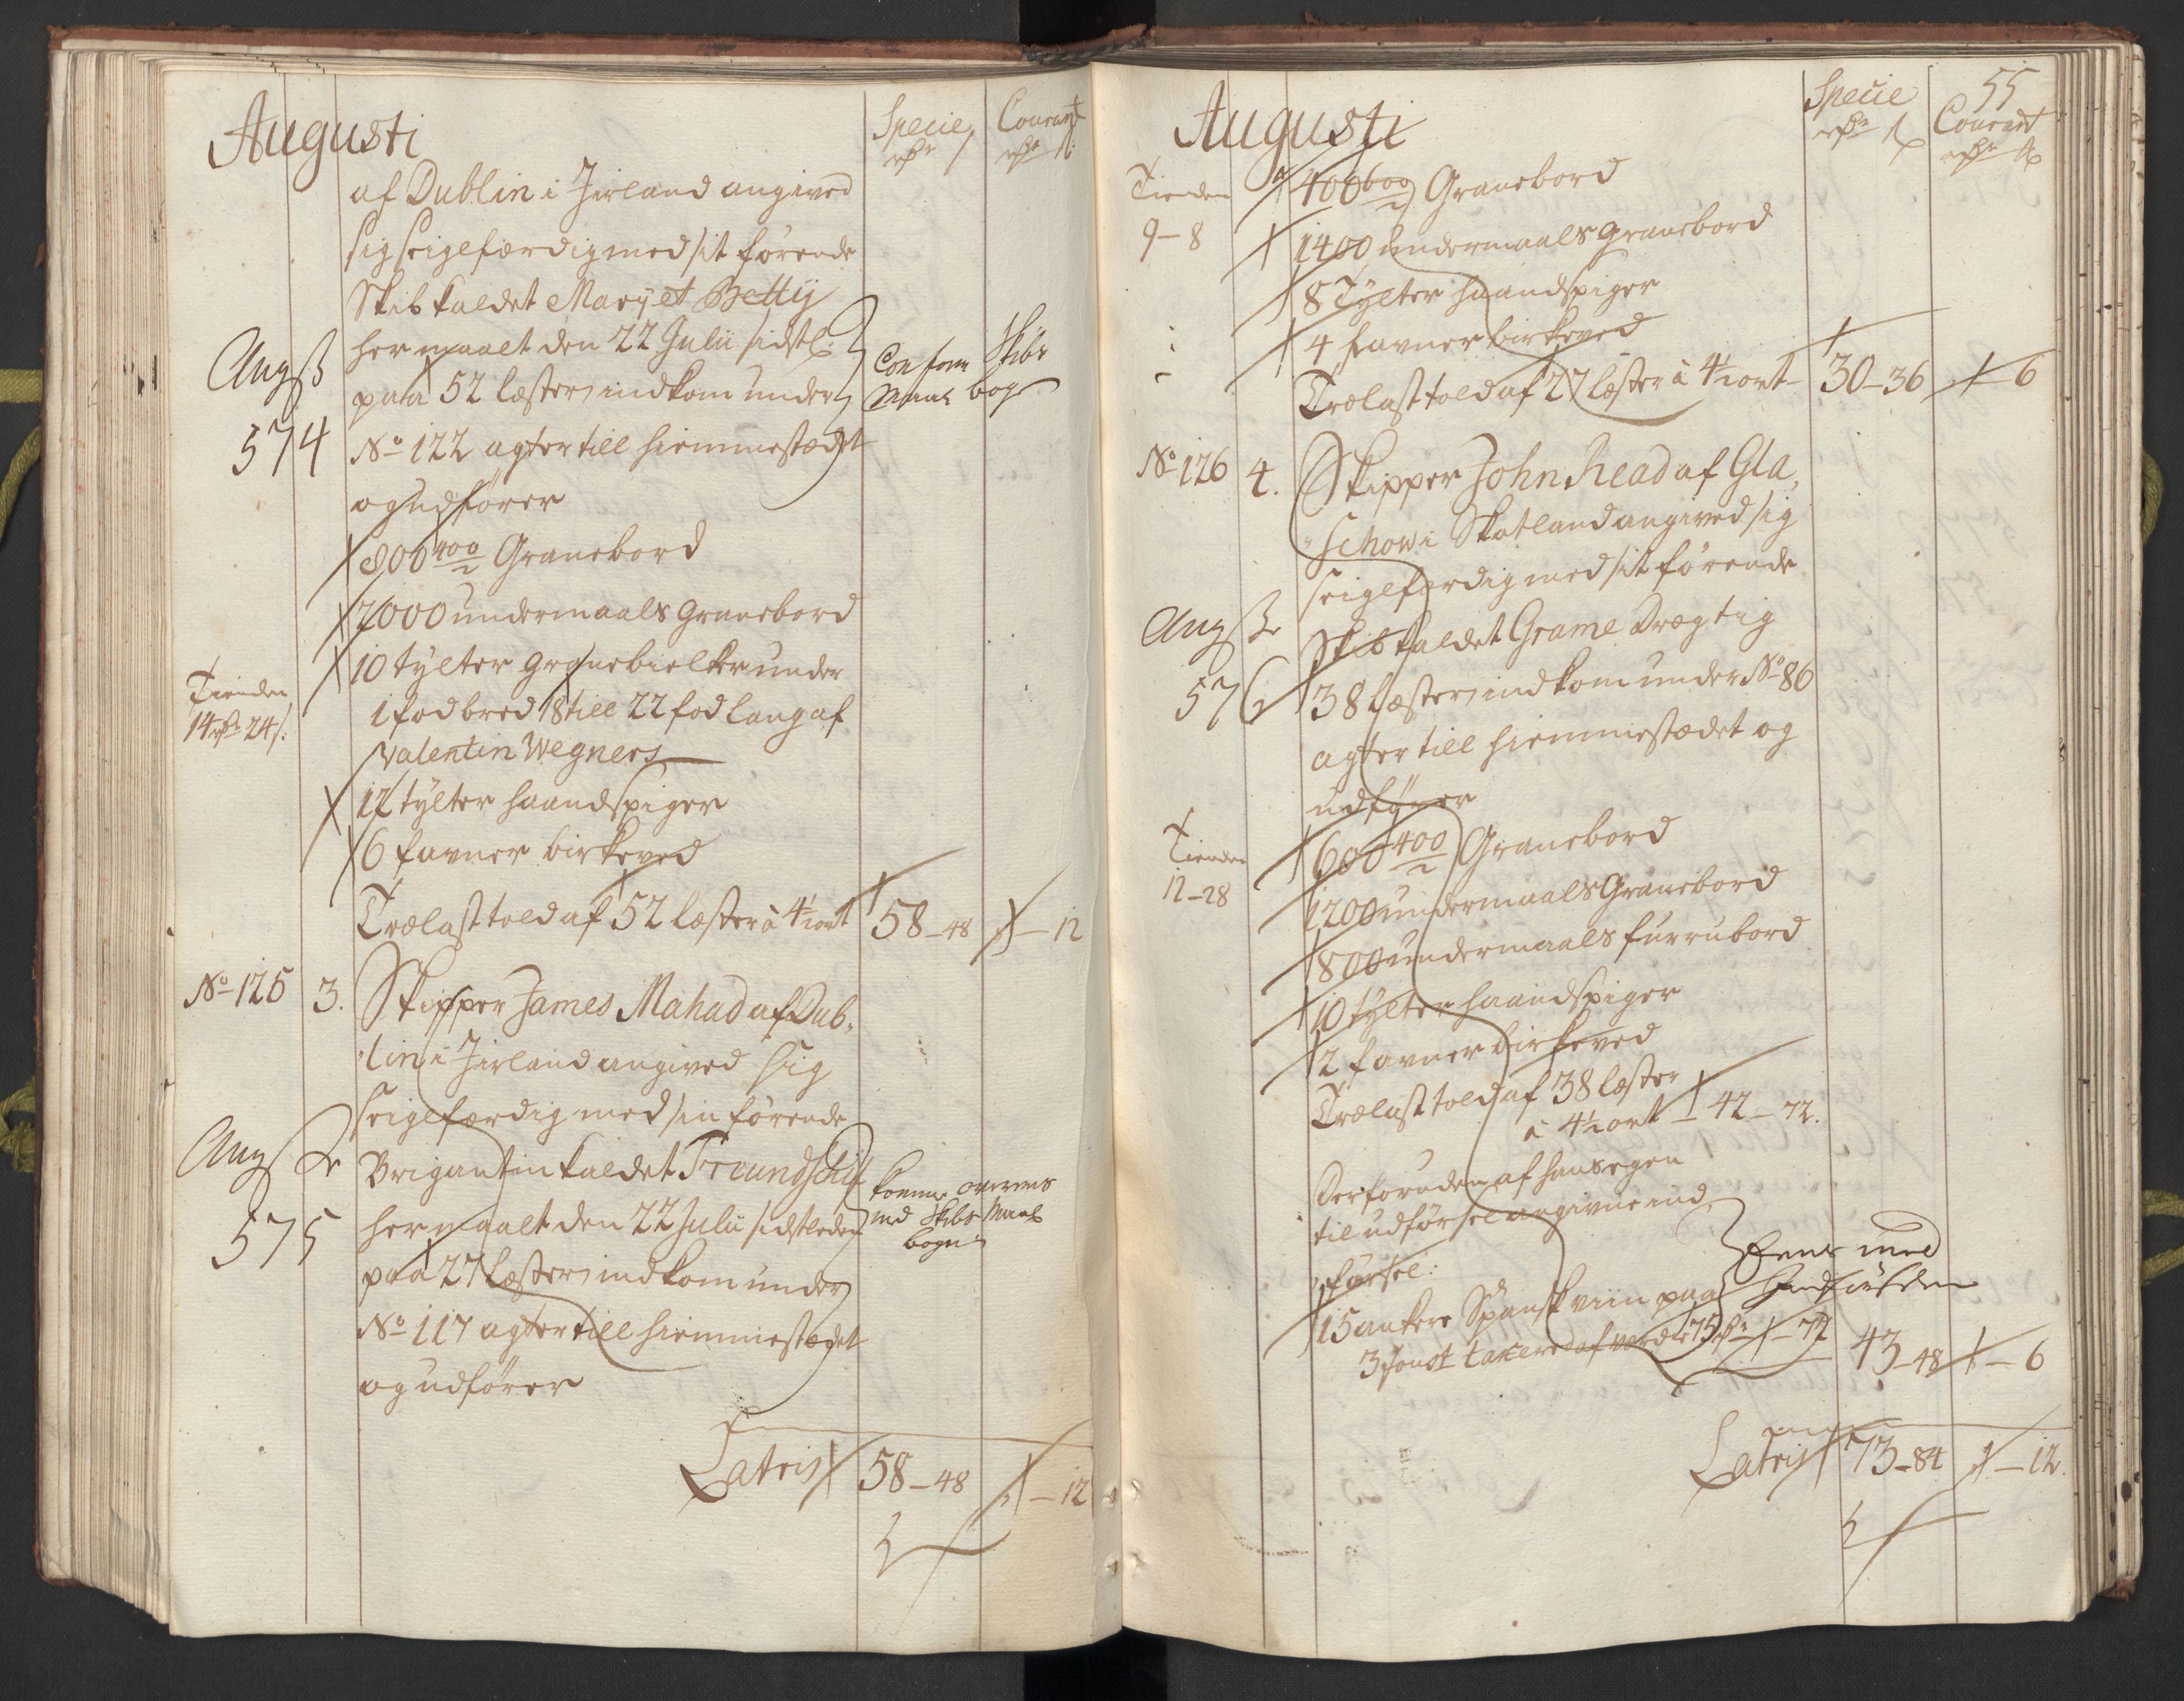 Augusti
Specie
rdr ß
Courant
rdr ß
af Dublin i Jirland angived
sig seigelfærdig med sit förende
Skib kaldet Marÿ et Bettÿ
her maalt den 22 Julii sidstl:
Conform Skibs
Maal bog
Ang ß
paa 52 læster, indkom under
574
No 122 agter till hiemmestædet
og udförer
800 400 Granebord
7000 undermaals granebord
10 tÿlter granebielker under
Tienden
1 fod bred 18 till 22 fod lang af
14 rdr 24 ß.
Valentin Wegners
12 tÿlter haandspiger
6 favner birkeved
Trælast told af 52 læster à 4½ ort
58 - 48
- 12
No 125
3.
Skipper James Mahad af Dub-
lin i Jirland angived sig
seigelfærdig med sin förende
Ang
Brigantin kaldet Freundschif
komme overens
575
her maalt den 22 Julii sidstleden
med Skibs Maal
bogen
paa 27 læster, indkom under
No 117 agter till hiemmestædet
og udförer
Latris
58 - 48
- 12
Augusti
Specie
rdr ß
55
Courant
rdr ß
Tienden
400 600 Granebord
9 - 8
1400 undermaals granebord
8 Tÿlter haandspiger
4 favner birkeved
Trælast told af 27 læster à 4½ ort
30 - 36
- 6
No 126
4.
Skipper John Read af Gla,
schow i Skotland angived sig
seigelfærdig med sit förende
Ang
Skib kaldet Grame Drægtig
576
38 læster, indkom under No 86
agter till hiemmestædet og
udförer
Tienden
600 400 Granebord
12 - 28
1200 undermaals Granebord
800 undermaals furrubord
10 tÿlter haandspiger
2 favner birkeved
Trælast told af 38 læster
à 4½ ort
42 - 72.
Desforuden af hans egen
til udförsel angivne ind-
försel:
Eens med
15 ankere Spansk viin paa
3 taxered af værdi 75 rdr
- 72
43 - 48
- 6
Latris
73 - 84
- 12.